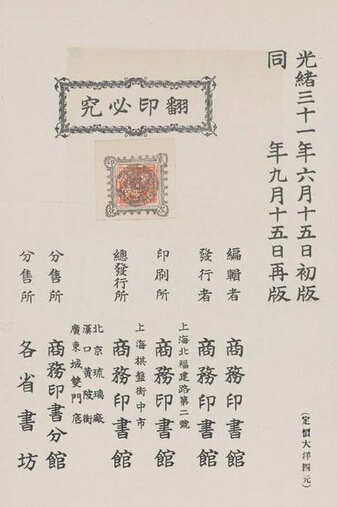 光緒三十一年六月十五日初版
同　　　　年九月十五日再版
（定價大洋四元）
翻印必究
編輯者　商務印書館
發行者　商務印書館
上海北福建路第二號
印刷所　商務印書館
上海棋盤街中市
總發行所　商務印書館
北京琉璃廠
漢口黃陂街
廣東城雙門底
分售所　商務印書分館
分售所　各省書坊